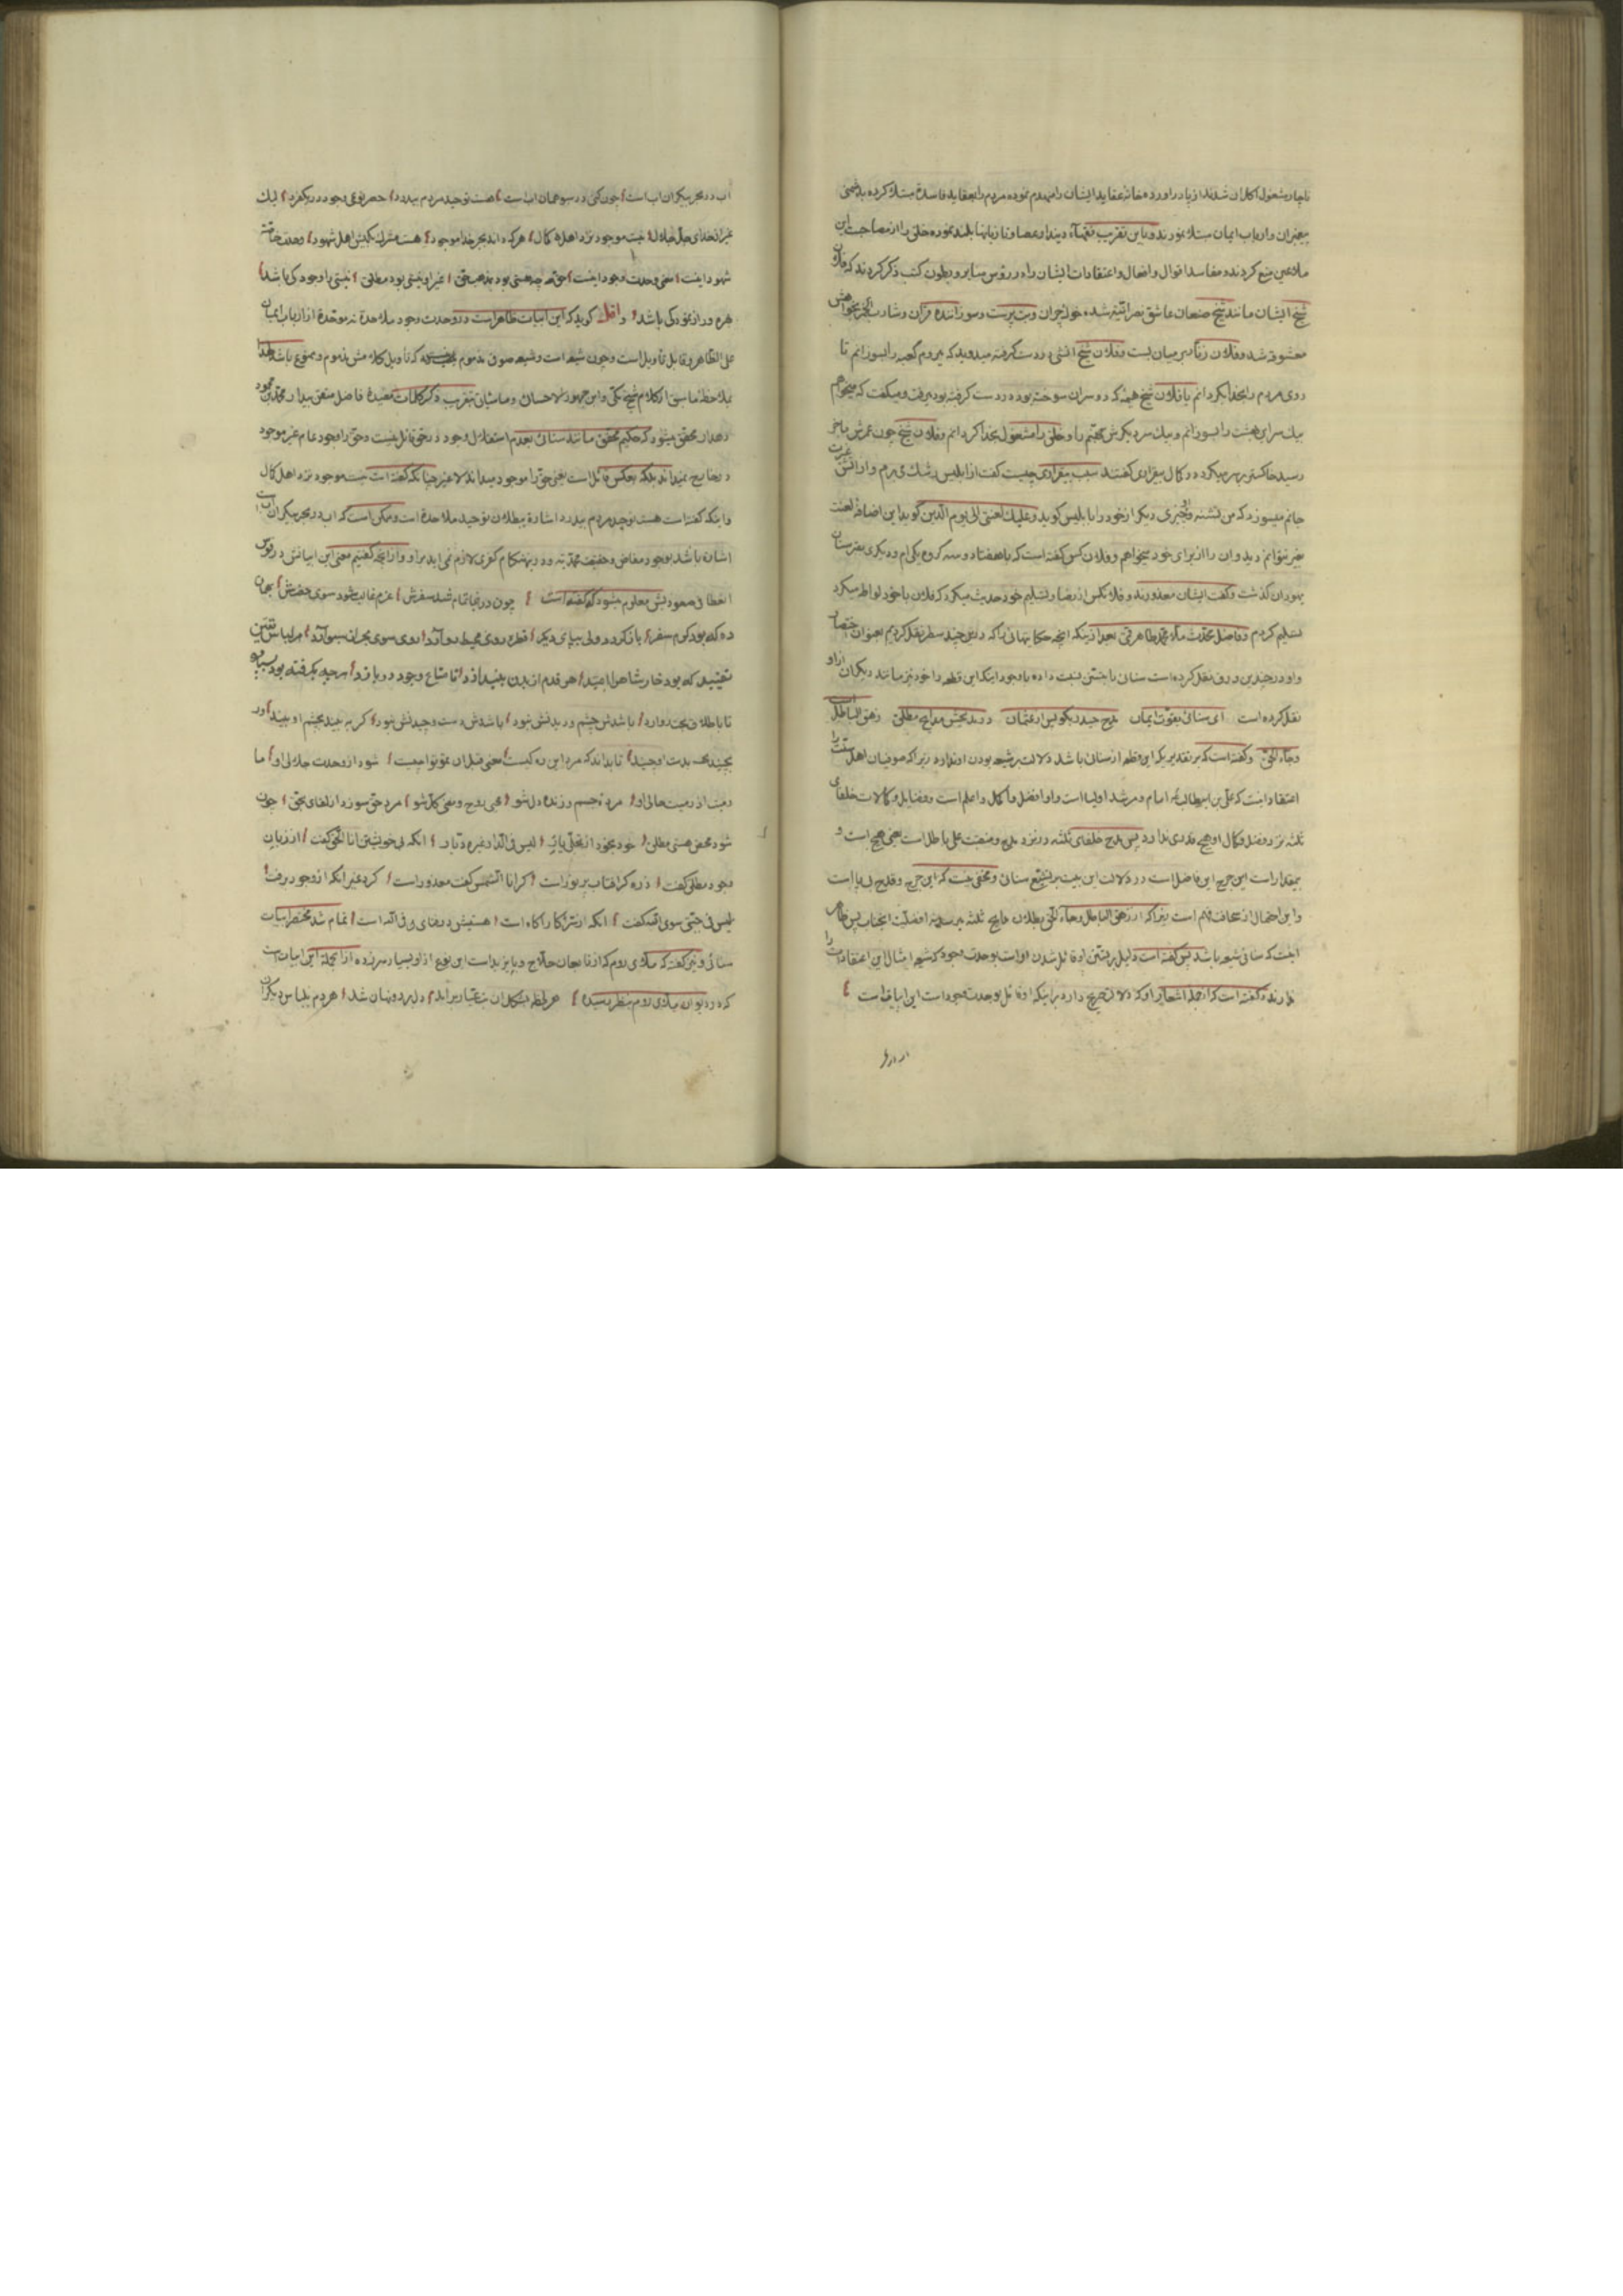 ناچار مشغول اکل ان شدند از پا در اورده خانه عقاید ایشان را منهدم نموده مردم را بعقاید فاسدة مبتلا کرده بدشمنی
پیغمبران و ارباب ایمان مبتلا نمودند و باین تقریب فقهاء دیندار عصا و تازیانها بلند نموده خلق را از مصاحبت این
ملاعین منع کردند و مفاسد اقوال و افعال و اعتقادات ایشان را در رؤس منابر و بطون کتب ذکر کردند که فلان
شیخ ایشان مانند شیخ صنعان عاشق نصرانیه شده خوک چران و بت پرست و سوزاننده قران و شارب الخمر بخواهش
معشوقه شد و فلان زنار بر میان بست و فلان شیخ اتشی در دست کرفته میدوید که میروم کعبه را بسوزانم تا
روی مردم را بخدا بکردانم یا فلان شیخ هیمه که دو سر ان سوخته بود در دست کرفته بود میرفت و میکفت که میخواهم
بیک سر این بهشت را بسوزانم و بیک سر دیکرش جهنم را و خلق را مشغول بخدا کردانم و فلان شیخ چون عمرش باخر
رسید خاکستر بر سر میکرد و در کمال بیقراری کفتند سبب بیقراری چیست کفت از ابلیس رشک می برم و از اتش غیرت
جانم میسوزد که من تشنه و او چیزی دیکر از خود را با بلیس کوید و علیک لعنتی الی یوم الدین کوید این اضافه لعنت
بغیر نتوانم دید و ان را از برای خود میخواهم و فلان کس کفته است که با هفتاد و سه کروه یکی ام و دیکری بقبرستان
یهودان کذشت و کفت ایشان معذورند و فلانکس از رضا و تسلیم خود حدیث میکرد که فلان با خود لواطه میکرد
تسلیم کردم و فاضل محدث ملا محمد طاهر قمی بعد از اینکه انچه حکایتهائی را که در این چند سطر نقل کردیم بعنوان اختصار
او در چندین ورق نقل کرده است سنائی را بتسنن نسبت داده با وجود اینکه این قطعه را خود نیز مانند دیکران از او
نقل کرده است ای سنائی بقوت ایمان مدح حیدر بکو پس از عثمان در مدیحش مدایح مطلق زهق الباطل
و جاء الحق و کفته است که بر تقدیریکه این قطعه از سنائی باشد دلالت بر شیعه بودن او ندارد زیرا که صوفیان اهل سنت را
اعتقاد اینست که علی بن ابیطالب امام و مرشد اولیا است و او افضل و اکمل و اعلم است و فضایل و کمالات خلفای
ثلثه نزد فضل و کمال او هیچ قدری ندارد پس مدح خلفای ثلثه در نزد مدح و منقبت علی باطل است یعنی هیچ است و
بیمقدار است این جرح این فاضل است در دلالت این بیت بر تشیع سنائی و مخفی نیست که این جرح و قدح بیجا است
و این احتمال از سخافت فهم است زیرا که از زهق الباطل و جاء الحق بطلان مدایح ثلثه میرسد نه افضلیت انجناب پس ظاهر
اینست که سنائی شیعه باشد پس کفته است دلیل بر تسنن او قائل شدن او است بوحدت وجود که شیعه امثال این اعتقادات را
ندارند و کفته است که از جمله اشعار او که دلالت صریح دارد بر اینکه او قائل بوحدت وجود است این ابیاتست
اب در بحر بیکران اب است چون کنی در سبو همان اب است هست توحید مردم بیدرد حصر نوع وجود در یک فرد لیک
غیر از خدای جل جلال نیست موجود نزد اهل کمال هر که داند بجز خدا موجود هست مشرک بکیش اهل شهود وحدت خاصه
شهود اینست معنی وحدت وجود اینست حق چه هستی بود بمذهب حق غیر او نیستی بود مطلق نیستی را وجود کی باشد
بهره ور از نمود کی باشد و اقل کوید که این ابیات ظاهر است در وحدت وجود ملاحدة نه موحدة از ارباب ایمان
علی الظاهر و قابل تاویل است و چون شیعه است و شیعه صوفی مذموم نمیشود که تاویل کلامش مذموم و ممنوع باشد لهذا
بملاحظه ما سبق از کلام شیخ مکی و ابن جمهور لاحسائی و ما سیاتی بتقریب ذکر کلمات مفیدة فاضل متقی بیدار محمد بن محمود
دهدار محقق میشود که حکیم محقق مانند سنائی بعدم استقلال وجود در حق قائل نیست و حق را وجود عام غیر موجود
در خارج نمیداند بلکه بعکس قائل است یعنی حق را موجود میداند لا غیر چنانکه کفته است نیست موجود نزد اهل کمال
و اینکه کفته است هست توحید مردم بیدرد اشارة ببطلان توحید ملاحدة است و ممکن است که اب در بحر بیکران اب است
اشاره باشد بوجود مفاض و حقیقت محمدیه و در ینهنکام کفری لازم نمی اید بر او و از انچه کفتیم معنی این ابیاتش در قوس
الخطا فی صعودیش معلوم میشود که کفته است چون در اینجا تمام شد سفرش عزم غالب شود سوی حضرش بهمان
ره که بود کرم سفر باز کردد ولی بپای دیکر قطره روی محیط رو آرد روی سوی بحر از سبو آرد هر لباس تعین
تقیید که بود خار شاهراه امید هر قدم از بدن بیندازد تا متاع وجود در بازد هر چه بکرفته بود بسپارد
تا باطلاق بخت رو آرد باشدش چشم و دیدنش نبود باشدش دست و چیدنش نبود کر به بیند بچشم او بیند ور
بچیند بدست او چیند تا بداند که مرد این ره کیست معنی قبل ان تموتوا چیست شود از وحدت جلالی او ما
رمیت اذ رمیت حالی او مرده جسم و زنده دل شو محی جزو و محی کل شو مرد حق سوزد از لقای بحق چون
شود محض هستی مطلق خود بخود از تجلی باید لیس فی الدار غیره دیار انکه بی خویشتن انا الحق کفت از زبان
وجود مطلق کفت ذره کز افتاب پر نور است کر انا الشمس کفت معذور است کرد غیر انکه از وجود برفت
لیس فی جبتی سوی الله کفت انکه از سر کار اکاه است هستیش در فنای فی الله است تمام شد مختصر ابیات
سنائی و نیز کفته که ملای روم که از تابعان حلاج و بایزید است این نوع از او بسیار سر زده از انجمله این ابیات است
که در دیوان ملای روم بنظر رسیده هر لحظه بشکل ان بت عیار بر امد دل برد و نهان شد هر دم بلباس دیکر ان